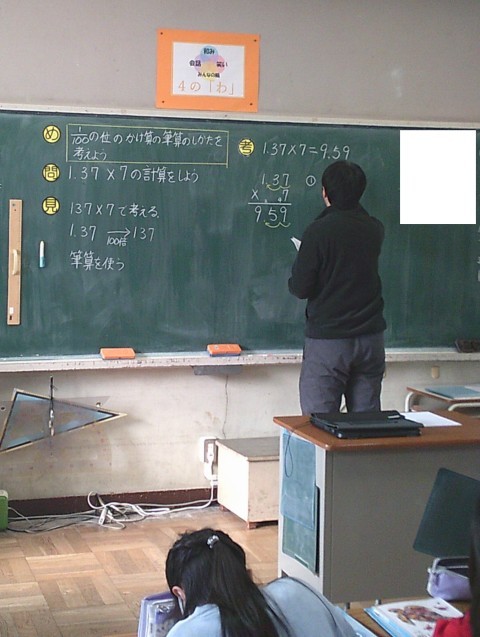 和み
会話
笑い
みんなの輪
4の「わ」
め 1/100の位のかけ算の筆算のしかたを
考えよう
問 1.37×7の計算をしよう
見 137×7で考える
1.37 → 137
100倍
筆算を使う
考 1.37×7=9.59
1.37 ①
× 7
9.59